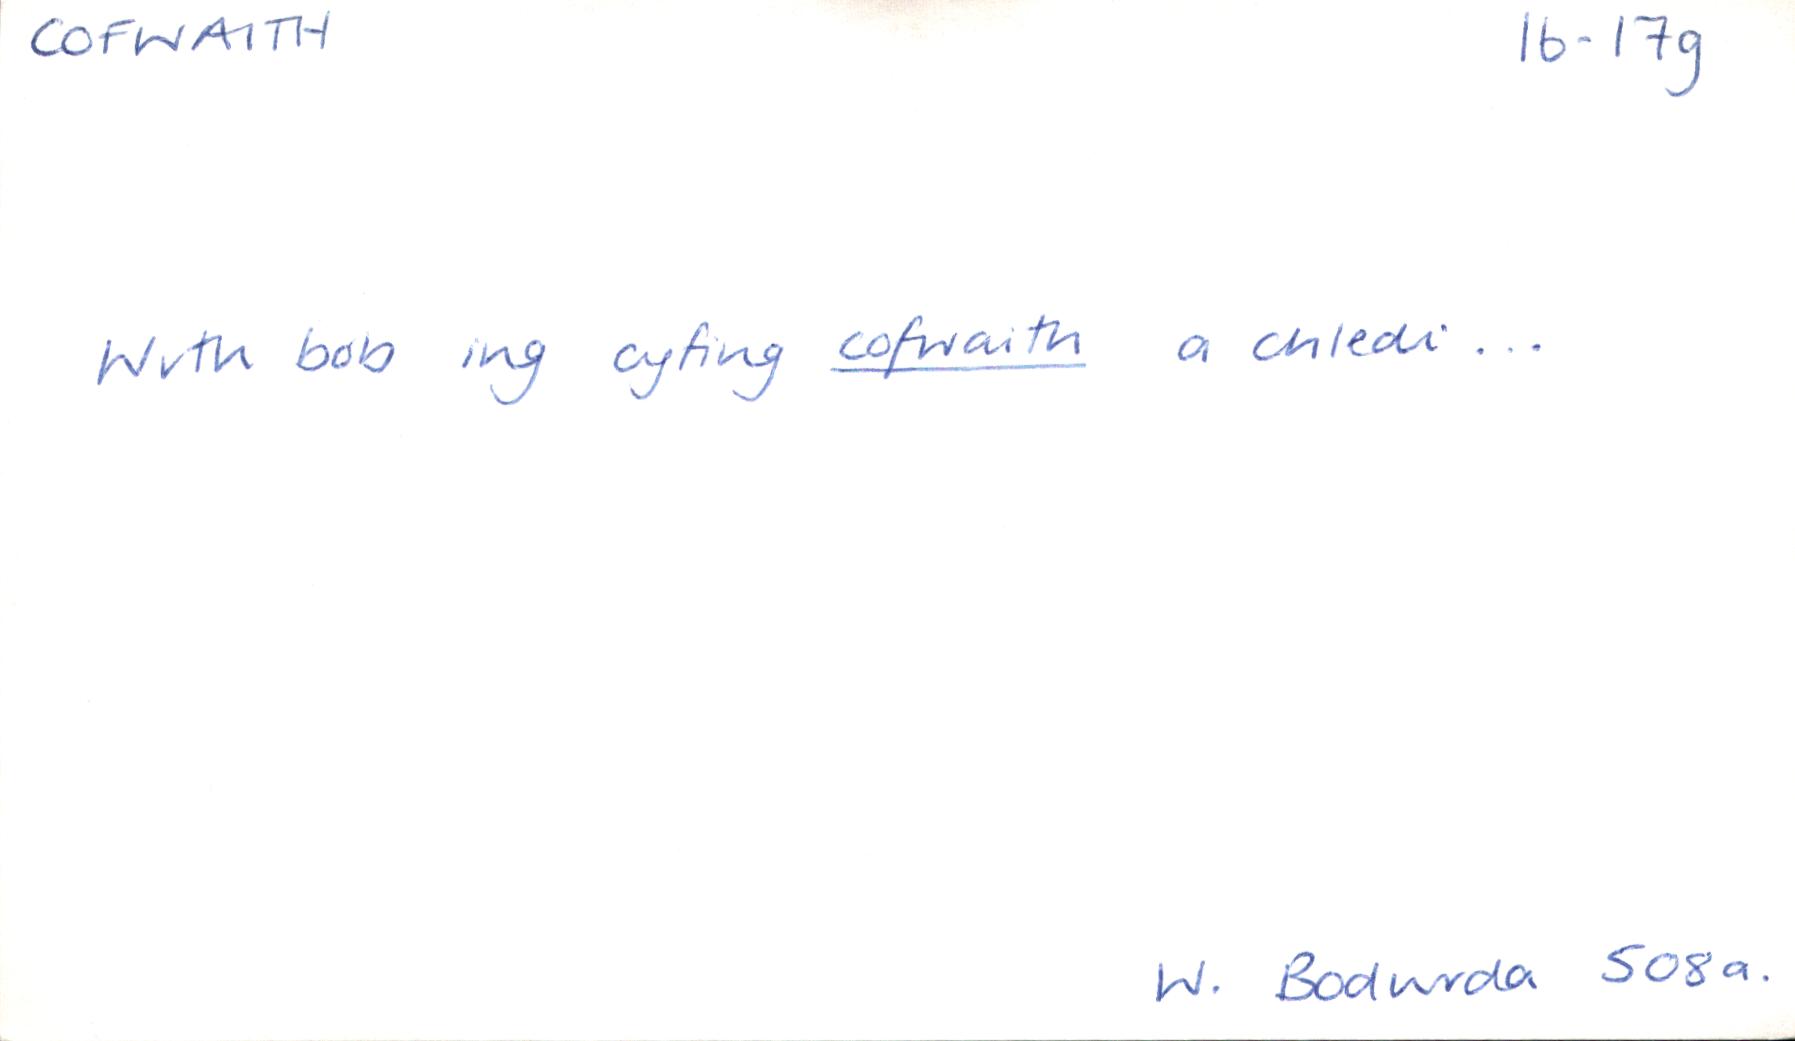 COFWAITH 16-17g
Wrth bob ing cyfing cofwaith a chledi...
W. Bodwrda 508a.